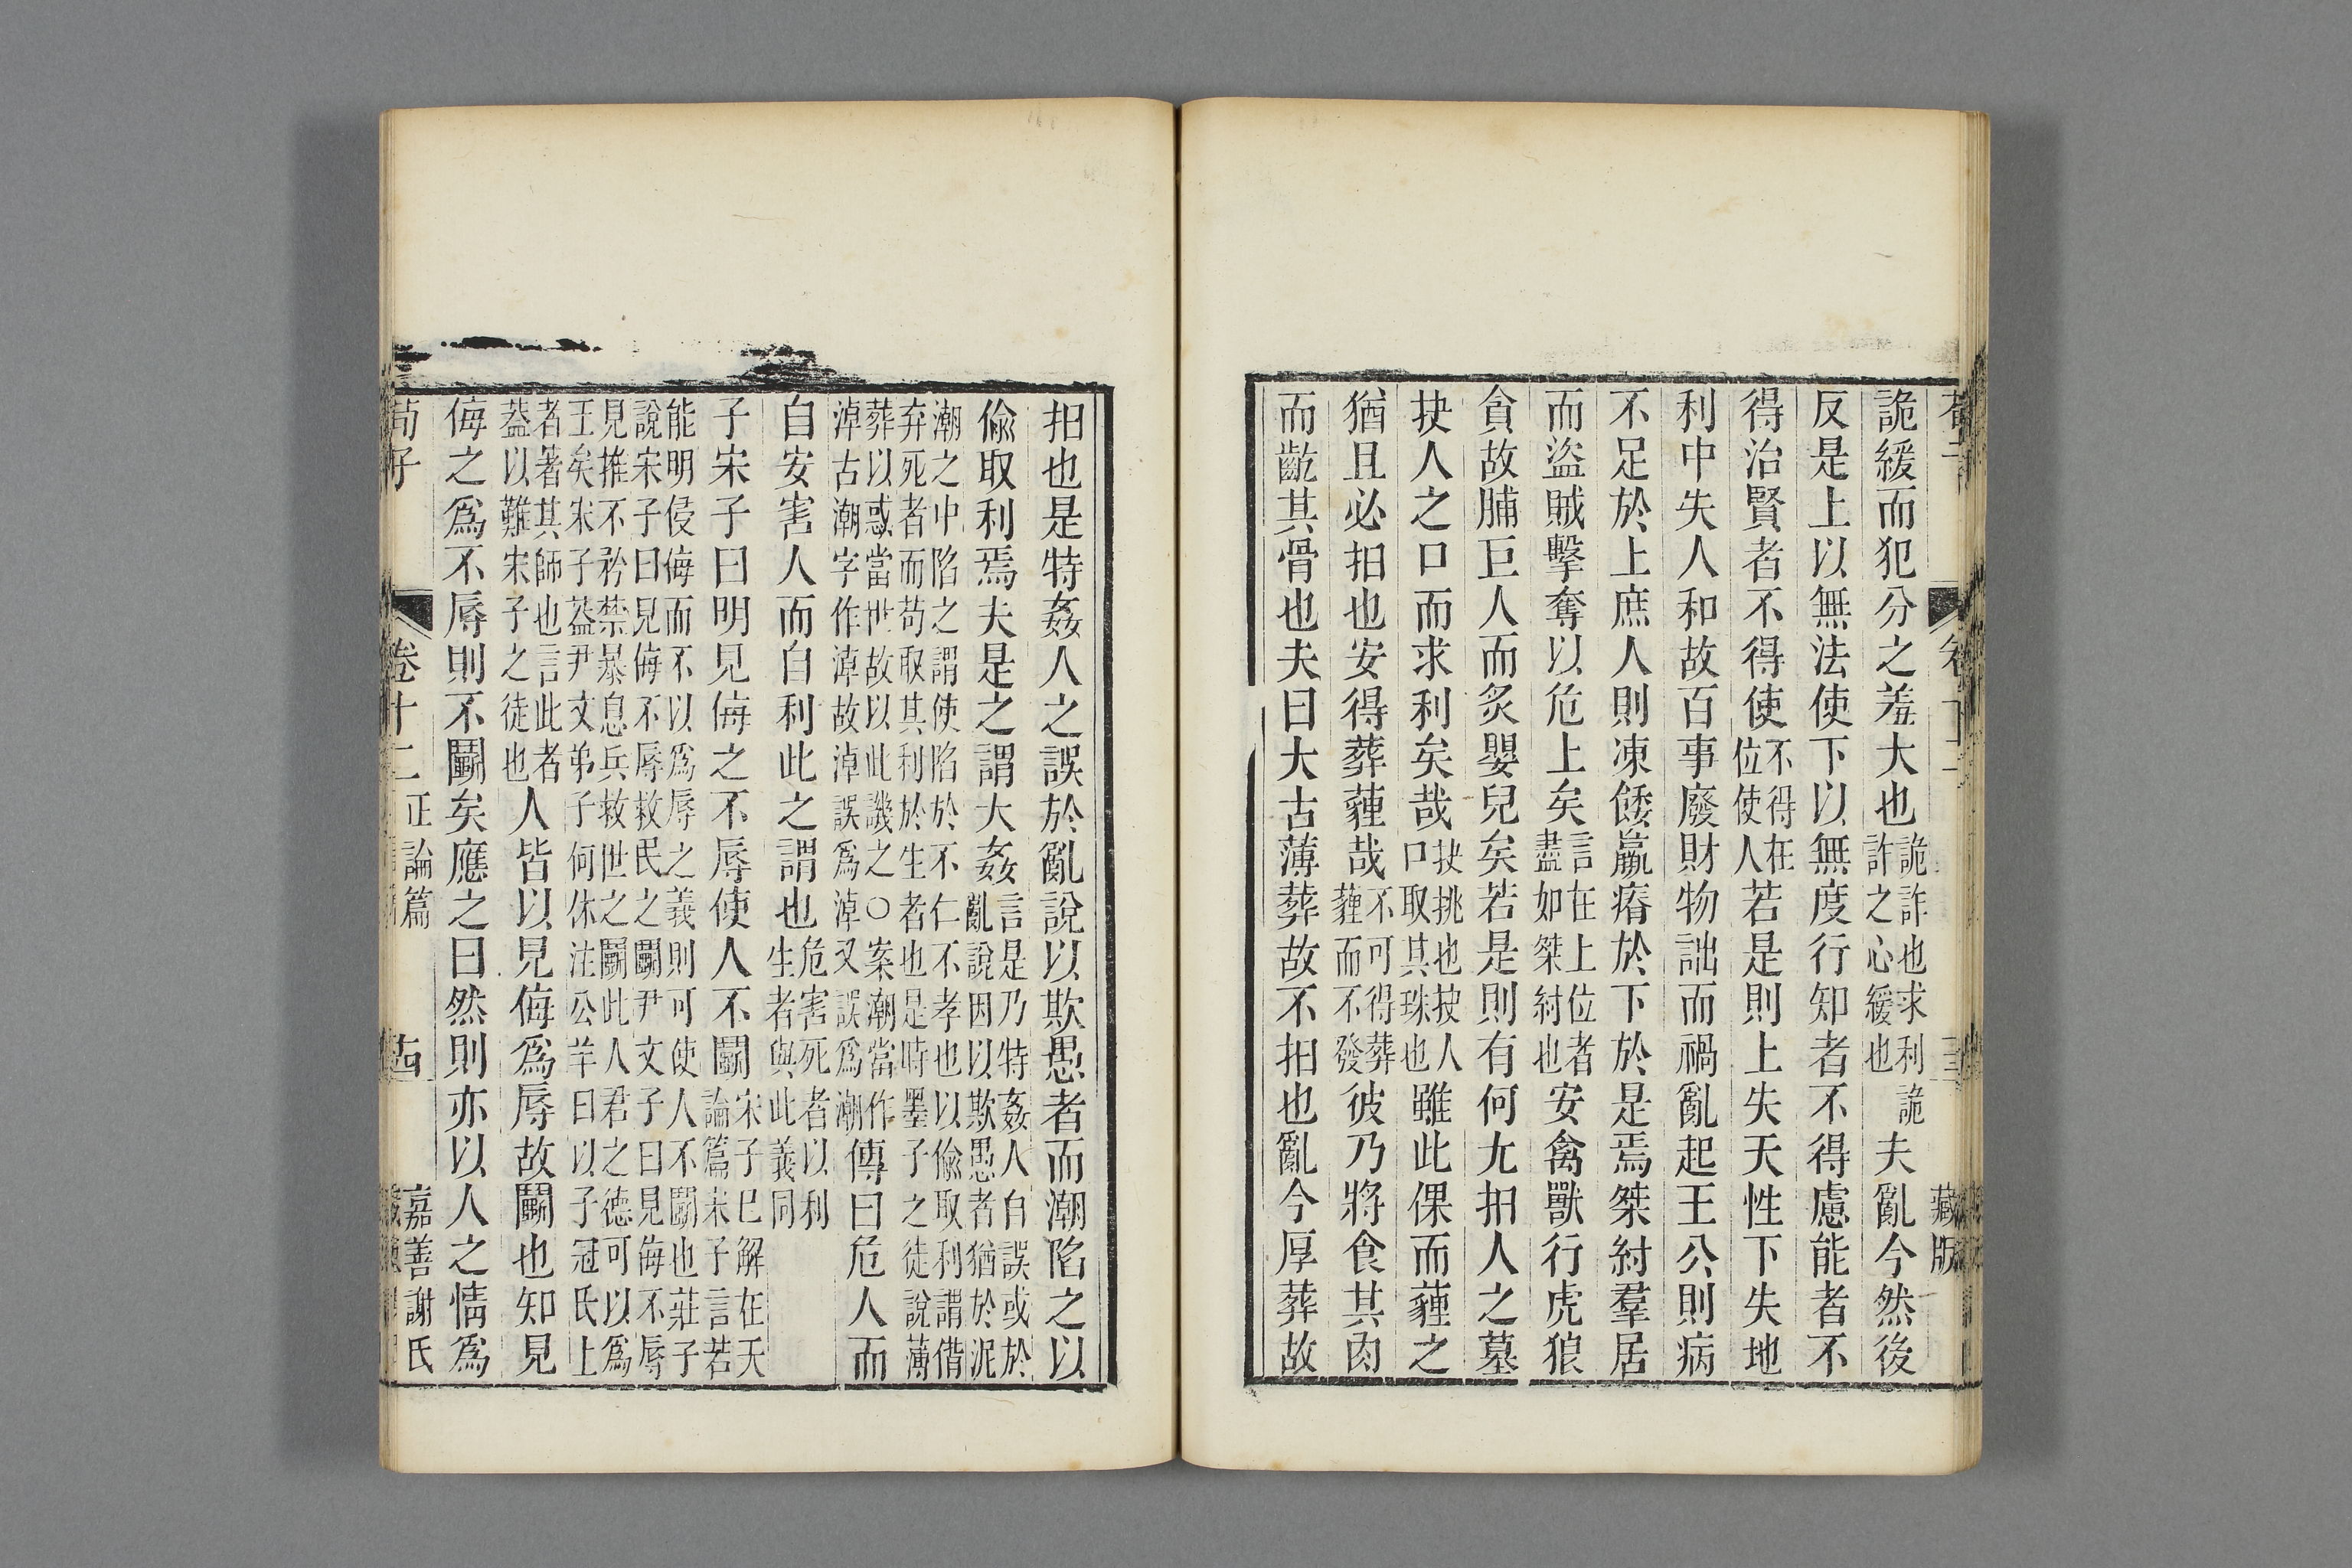 藏版
詭緩而犯分之羞大也詭詐也求利詭詐之心緩也夫亂今然後
反是上以無法使下以無度行知者不得慮能者不
得治賢者不得使不得在位使人若是則上失天性下失地
利中失人和故百事廢財物詘而禍亂起王公則病
不足於上庶人則凍餧羸瘠於下於是焉桀紂羣居
而盜賊擊奪以危上矣言在上位者盡如桀紂也安禽獸行虎狼
貪故脯巨人而炙嬰兒矣若是則有何尤抇人之墓
抉人之口而求利矣哉抉挑也抉人口取其珠也雖此倮而薶之
猶且必抇也安得葬薶哉不可得葬薶而不發彼乃將食其肉
而齕其骨也夫曰大古薄葬故不抇也亂今厚葬故
抇也是特姦人之誤於亂說以欺愚者而潮陷之以
偷取利焉夫是之謂大姦言是乃特姦人自誤或於亂說因以欺愚者猶於泥
潮之中陷之謂使陷於不仁不孝也以偷取利謂借
弃死者而苟取其利於生者也是時墨子之徒說薄
葬以惑當世故以此譏之○案潮當作淖古潮字作淖故淖誤爲淖又誤爲潮傳曰危人而
自安害人而自利此之謂也危害死者以利生者與此義同
子宋子曰明見侮之不辱使人不鬭宋子巳解在天論篇宋子言若
能明侵侮而不以爲辱之義則可使人不鬭也莊子
說宋子曰見侮不辱救民之鬭尹文子曰見侮不辱
見推不矜禁暴息兵救世之鬭此人君之德可以爲
王矣宋子蓋尹文弟子何休注公羊曰以子冠氏上
者著其師也言此者蓋以難宋子之徒也人皆以見侮爲辱故鬭也知見
侮之爲不辱則不鬭矣應之曰然則亦以人之情爲
荀子 卷十二 正論篇 十四 嘉善謝氏